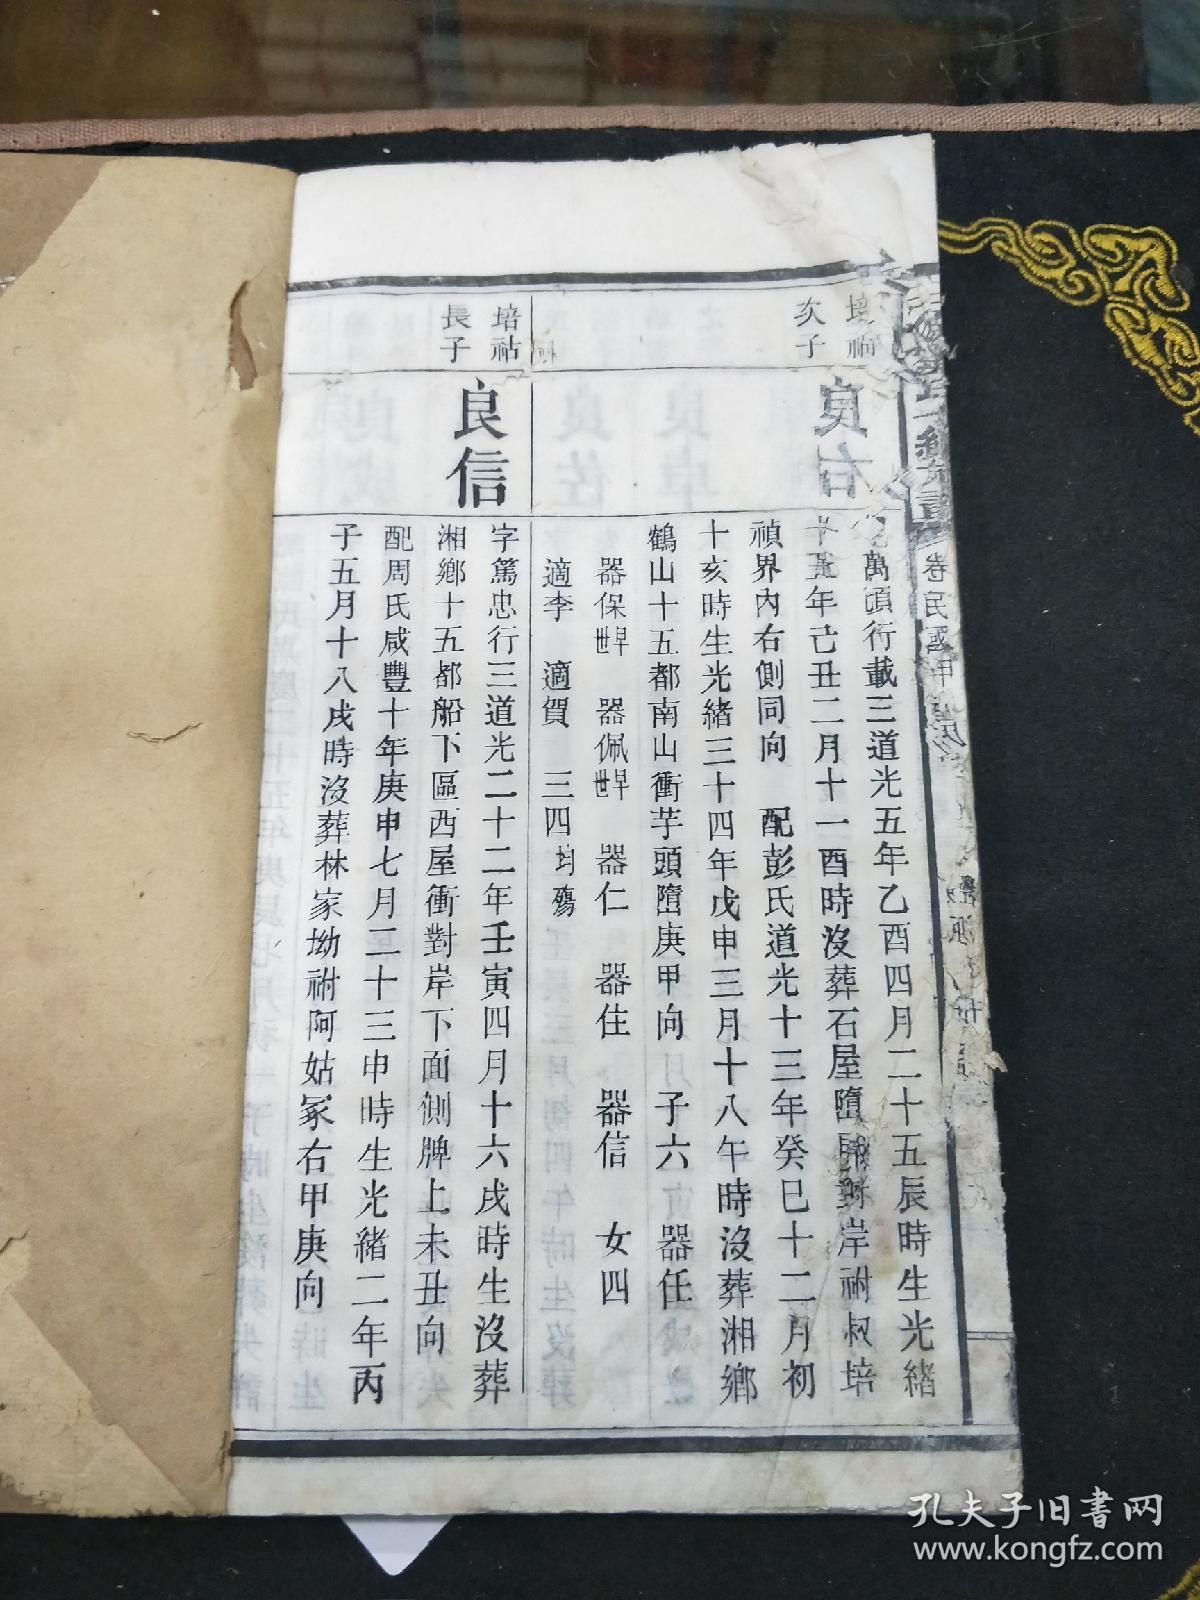 卷民國甲
培
次子
良右
萬頃行載三道光五年乙酉四月二十五辰時生光緒
十五年己丑二月十一酉時沒葬石屋墮屋對岸祔叔培
禎界內右側同向 配彭氏道光十三年癸巳十二月初
十亥時生光緒三十四年戊申三月十八午時沒葬湘鄉
鶴山十五都南山衝芋頭墮庚甲向 子六 器任
器保早世 器佩早世 器仁 器住 器信 女四
適李 適賀 三四均殤
培祜
長子
良信
字篤忠行三道光二十二年壬寅四月十六戌時生沒葬
湘鄉十五都船下區西屋衝對岸下面側牌上未丑向
配周氏咸豐十年庚申七月二十三申時生光緒二年丙
子五月十八戌時沒葬林家坳祔阿姑冢右甲庚向
孔夫子旧书网
www.kongfz.com